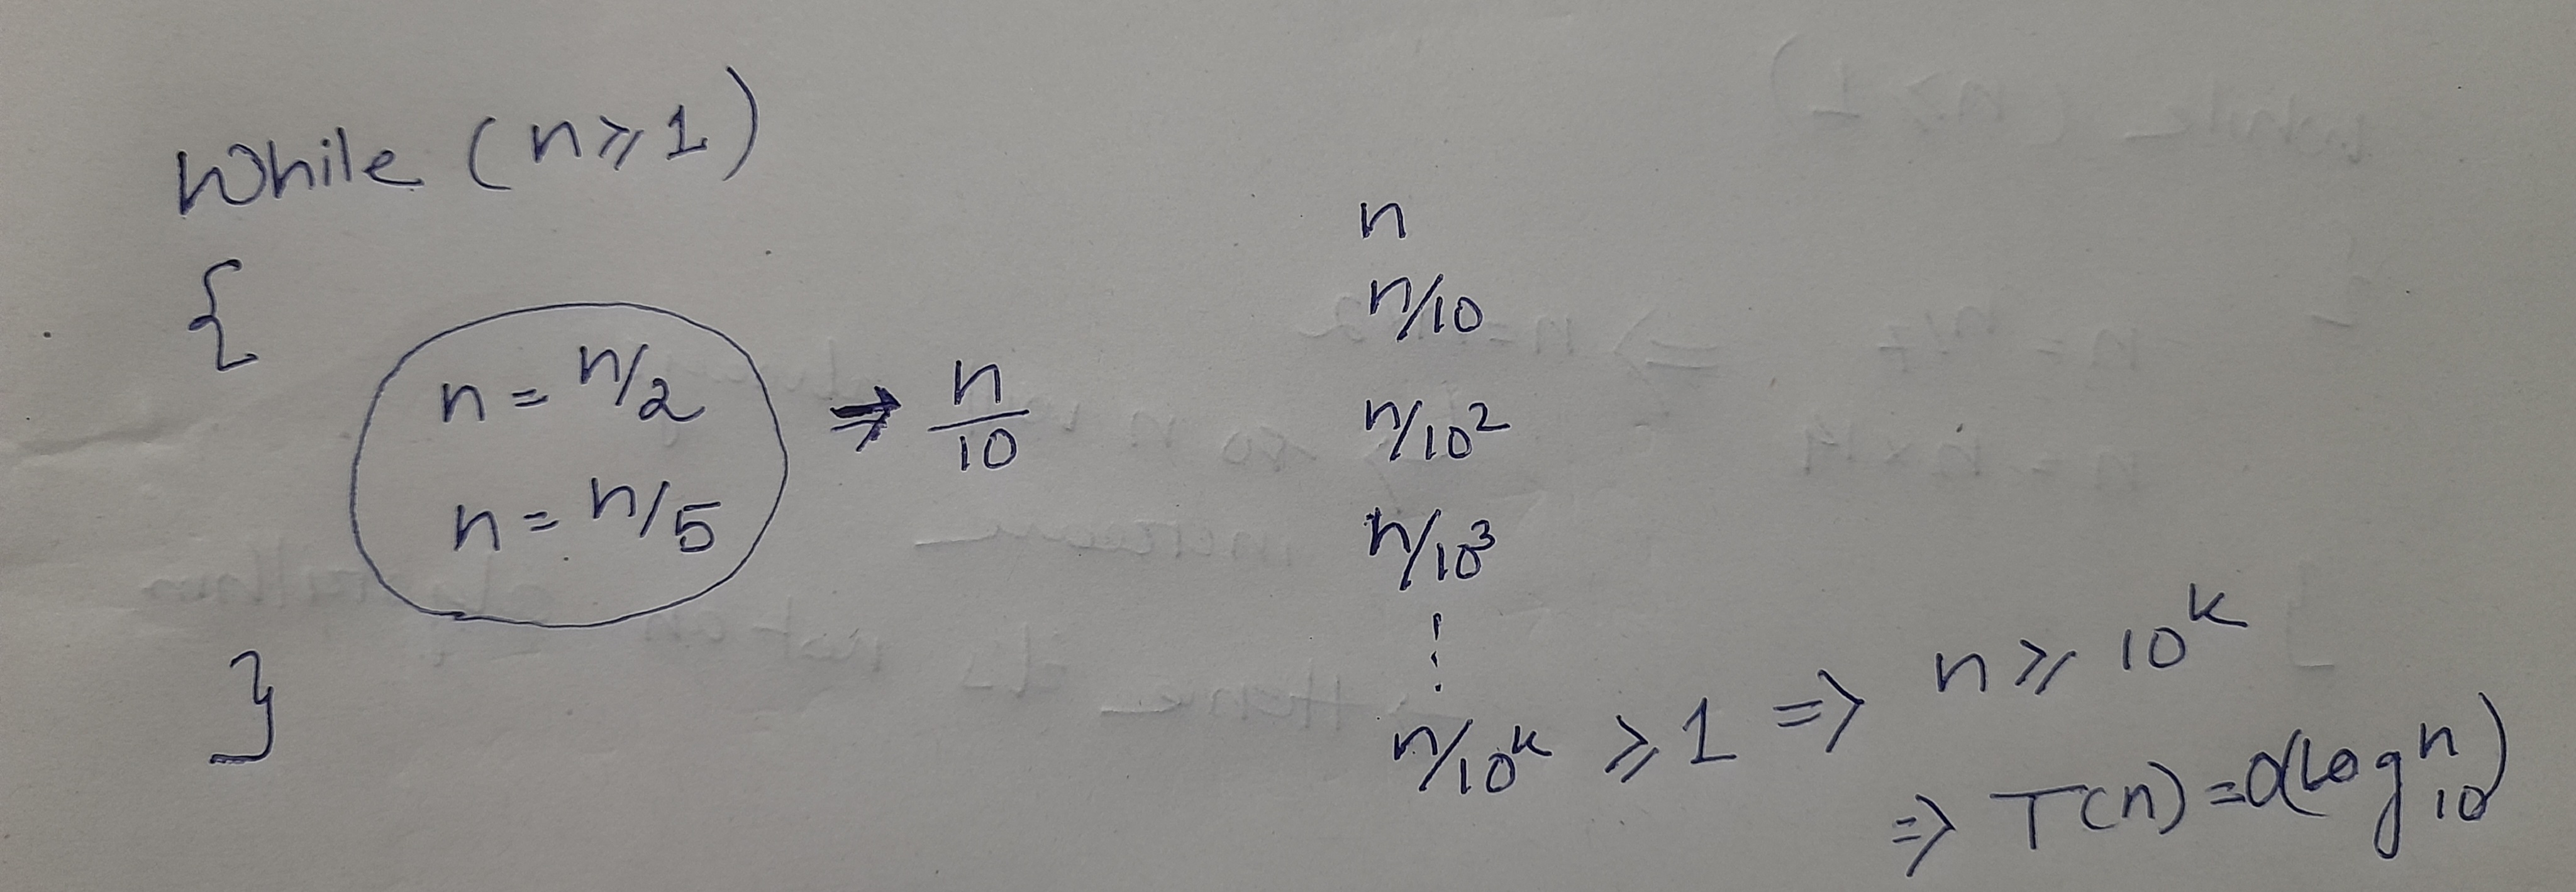 While (n ≥ 1)
{
n = n/2
n = n/5
⇒ n/10
}
n
n/10
n/10²
n/10³
⋮
n/10ᵏ ≥ 1 ⇒ n ≥ 10ᵏ
⇒ T(n) = O(log₁₀ⁿ)